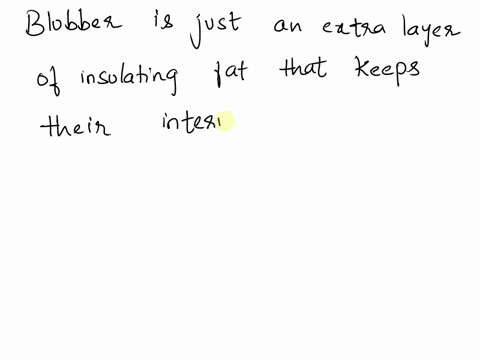 Blubber is just an extra layer
of insulating fat that keeps
their interi